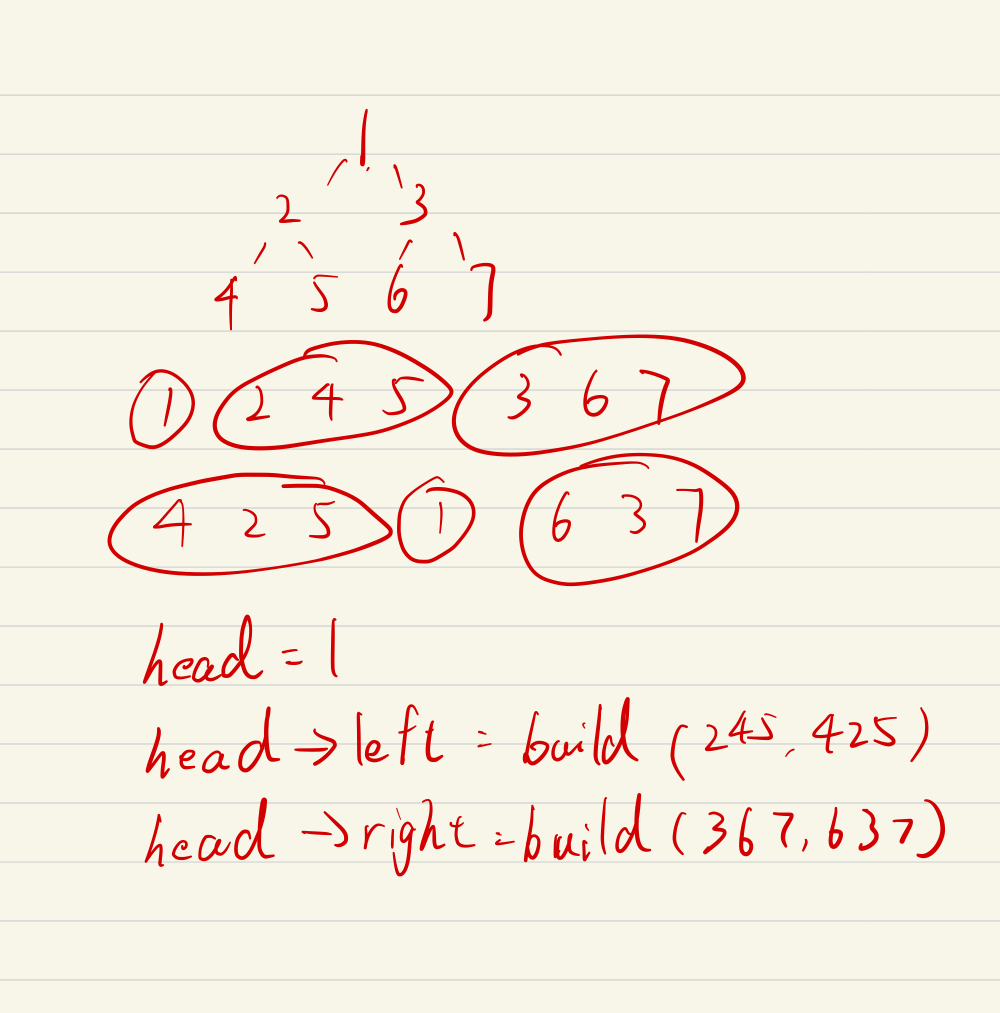 1
2 3
4 5 6 7
1 2 4 5 3 6 7
4 2 5 1 6 3 7
head = 1
head → left = build (245, 425)
head → right = build (367, 637)